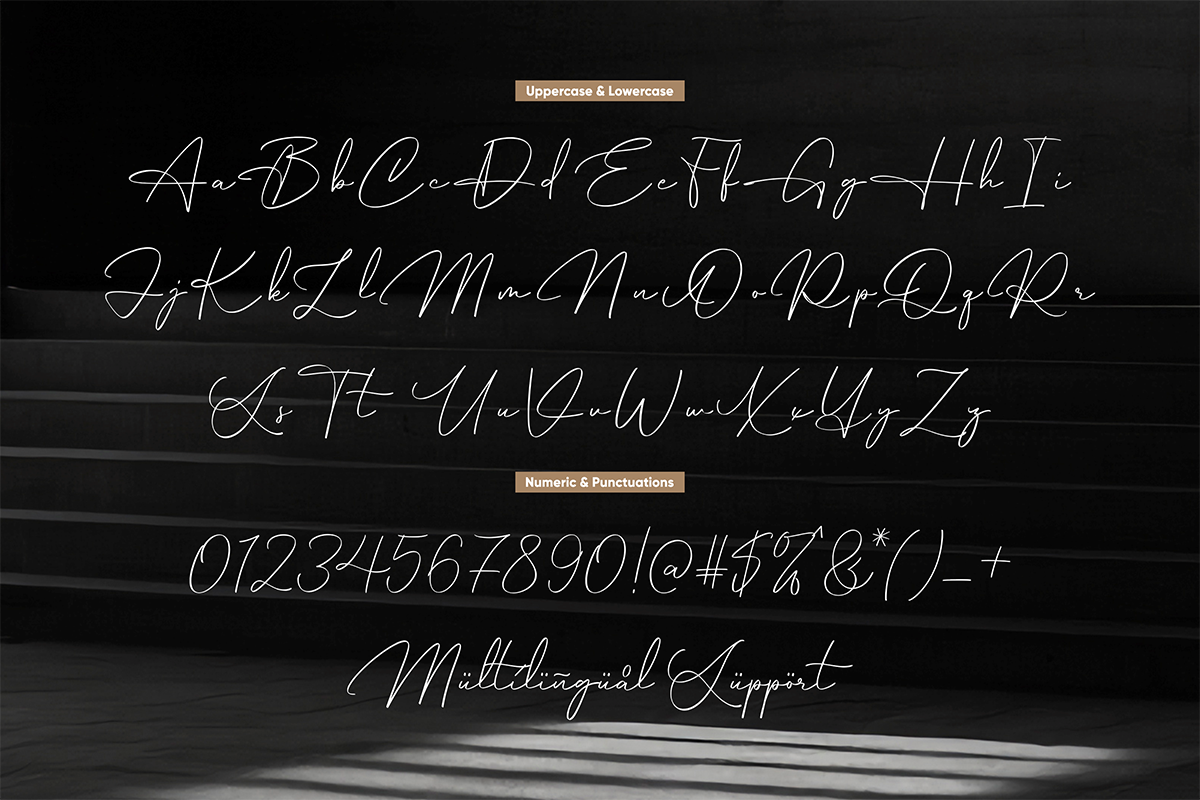 Uppercase & Lowercase
Aa Bb Cc Dd Ee Ff Gg Hh Ii
Jj Kk Ll Mm Nn Oo Pp Qq Rr
Ss Tt Uu Vv Ww Xx Yy Zz
Numeric & Punctuations
01234567890!@#$%^&*()_+
Mültílïñgüål Süppört